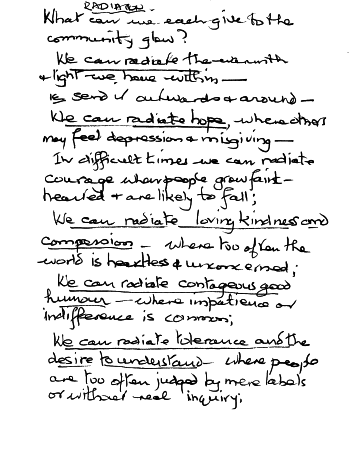 RADIATION.
What can we each give to the
community glow?
We can radiate the warmth
& light we have within —
is send it outwards & around —
We can radiate hope, where others
may feel depression & misgiving —
In difficult times we can radiate
courage when people grow faint-
hearted & are likely to fall;
We can radiate loving kindness and
compassion — where too often the
world is heartless & unconcerned;
We can radiate contageous good
humour — where impatience or
indifference is common;
We can radiate tolerance and the
desire to understand — where people
are too often judged by mere labels
or without real inquiry;